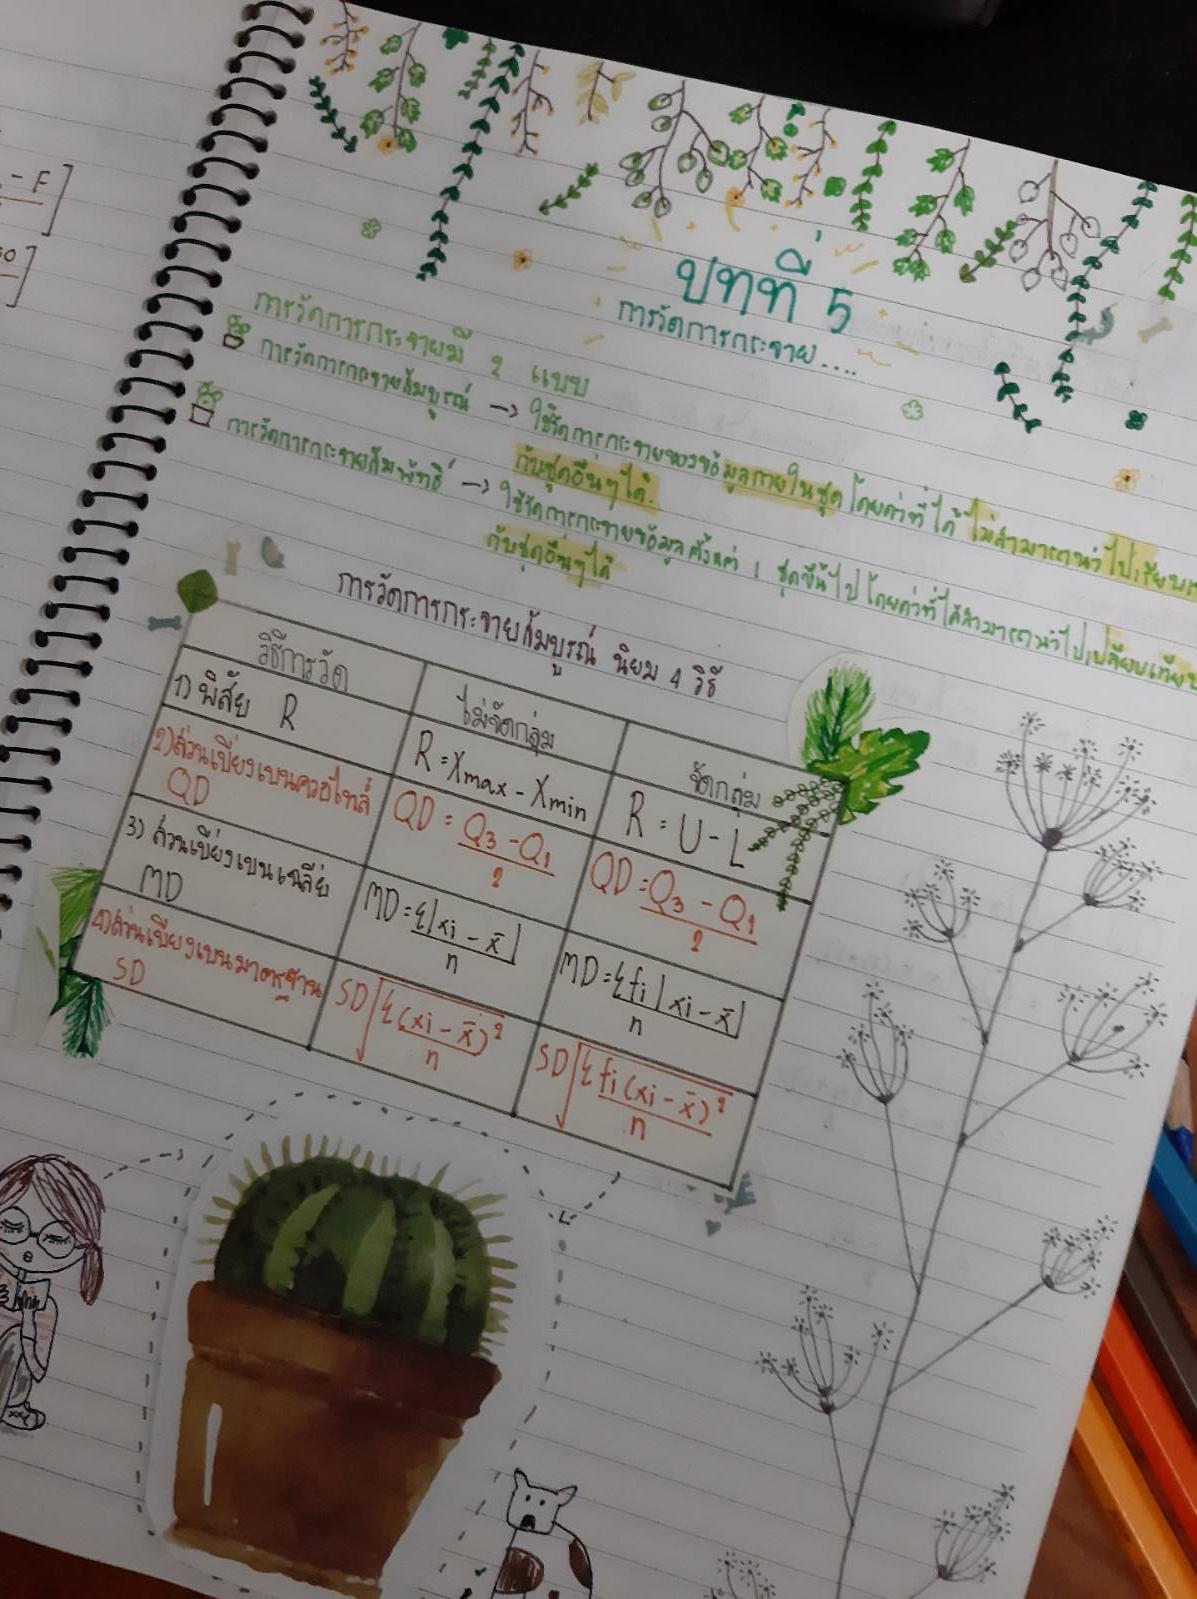 - F]
50]
บทที่ 5
การวัดการกระจาย....
การวัดการกระจายมี 2 แบบ
การวัดการกระจายสัมบูรณ์ → ใช้วัดการกระจายของข้อมูลภายในชุด โดยค่าที่ได้ ไม่สามารถนำไปเรียบเท
กับชุดอื่นๆได้.
การวัดการกระจายสัมพัทธ์ → ใช้วัดการกระจายข้อมูลตั้งแต่ 1 ชุดขึ้นไป โดยค่าที่ได้สามารถนำไปเปลียบเทียบ
กับชุดอื่นๆได้
การวัดการกระจายสัมบูรณ์ นิยม 4 วิธี
วิธีการวัด ไม่จัดกลุ่ม จัดกลุ่ม
1) พิสัย R R = Xmax - Xmin R = U - L
2) ส่วนเบี่ยงเบนควอไทล์ QD QD = Q3 - Q1 / 2 QD = Q3 - Q1 / 2
3) ส่วนเบี่ยงเบนเฉลี่ย MD MD = Σ|xi - x̄| / n MD = Σfi|xi - x̄| / n
4) ส่วนเบี่ยงเบนมาตรฐาน SD SD √Σ(xi - x̄)² / n SD √Σfi(xi - x̄)² / n